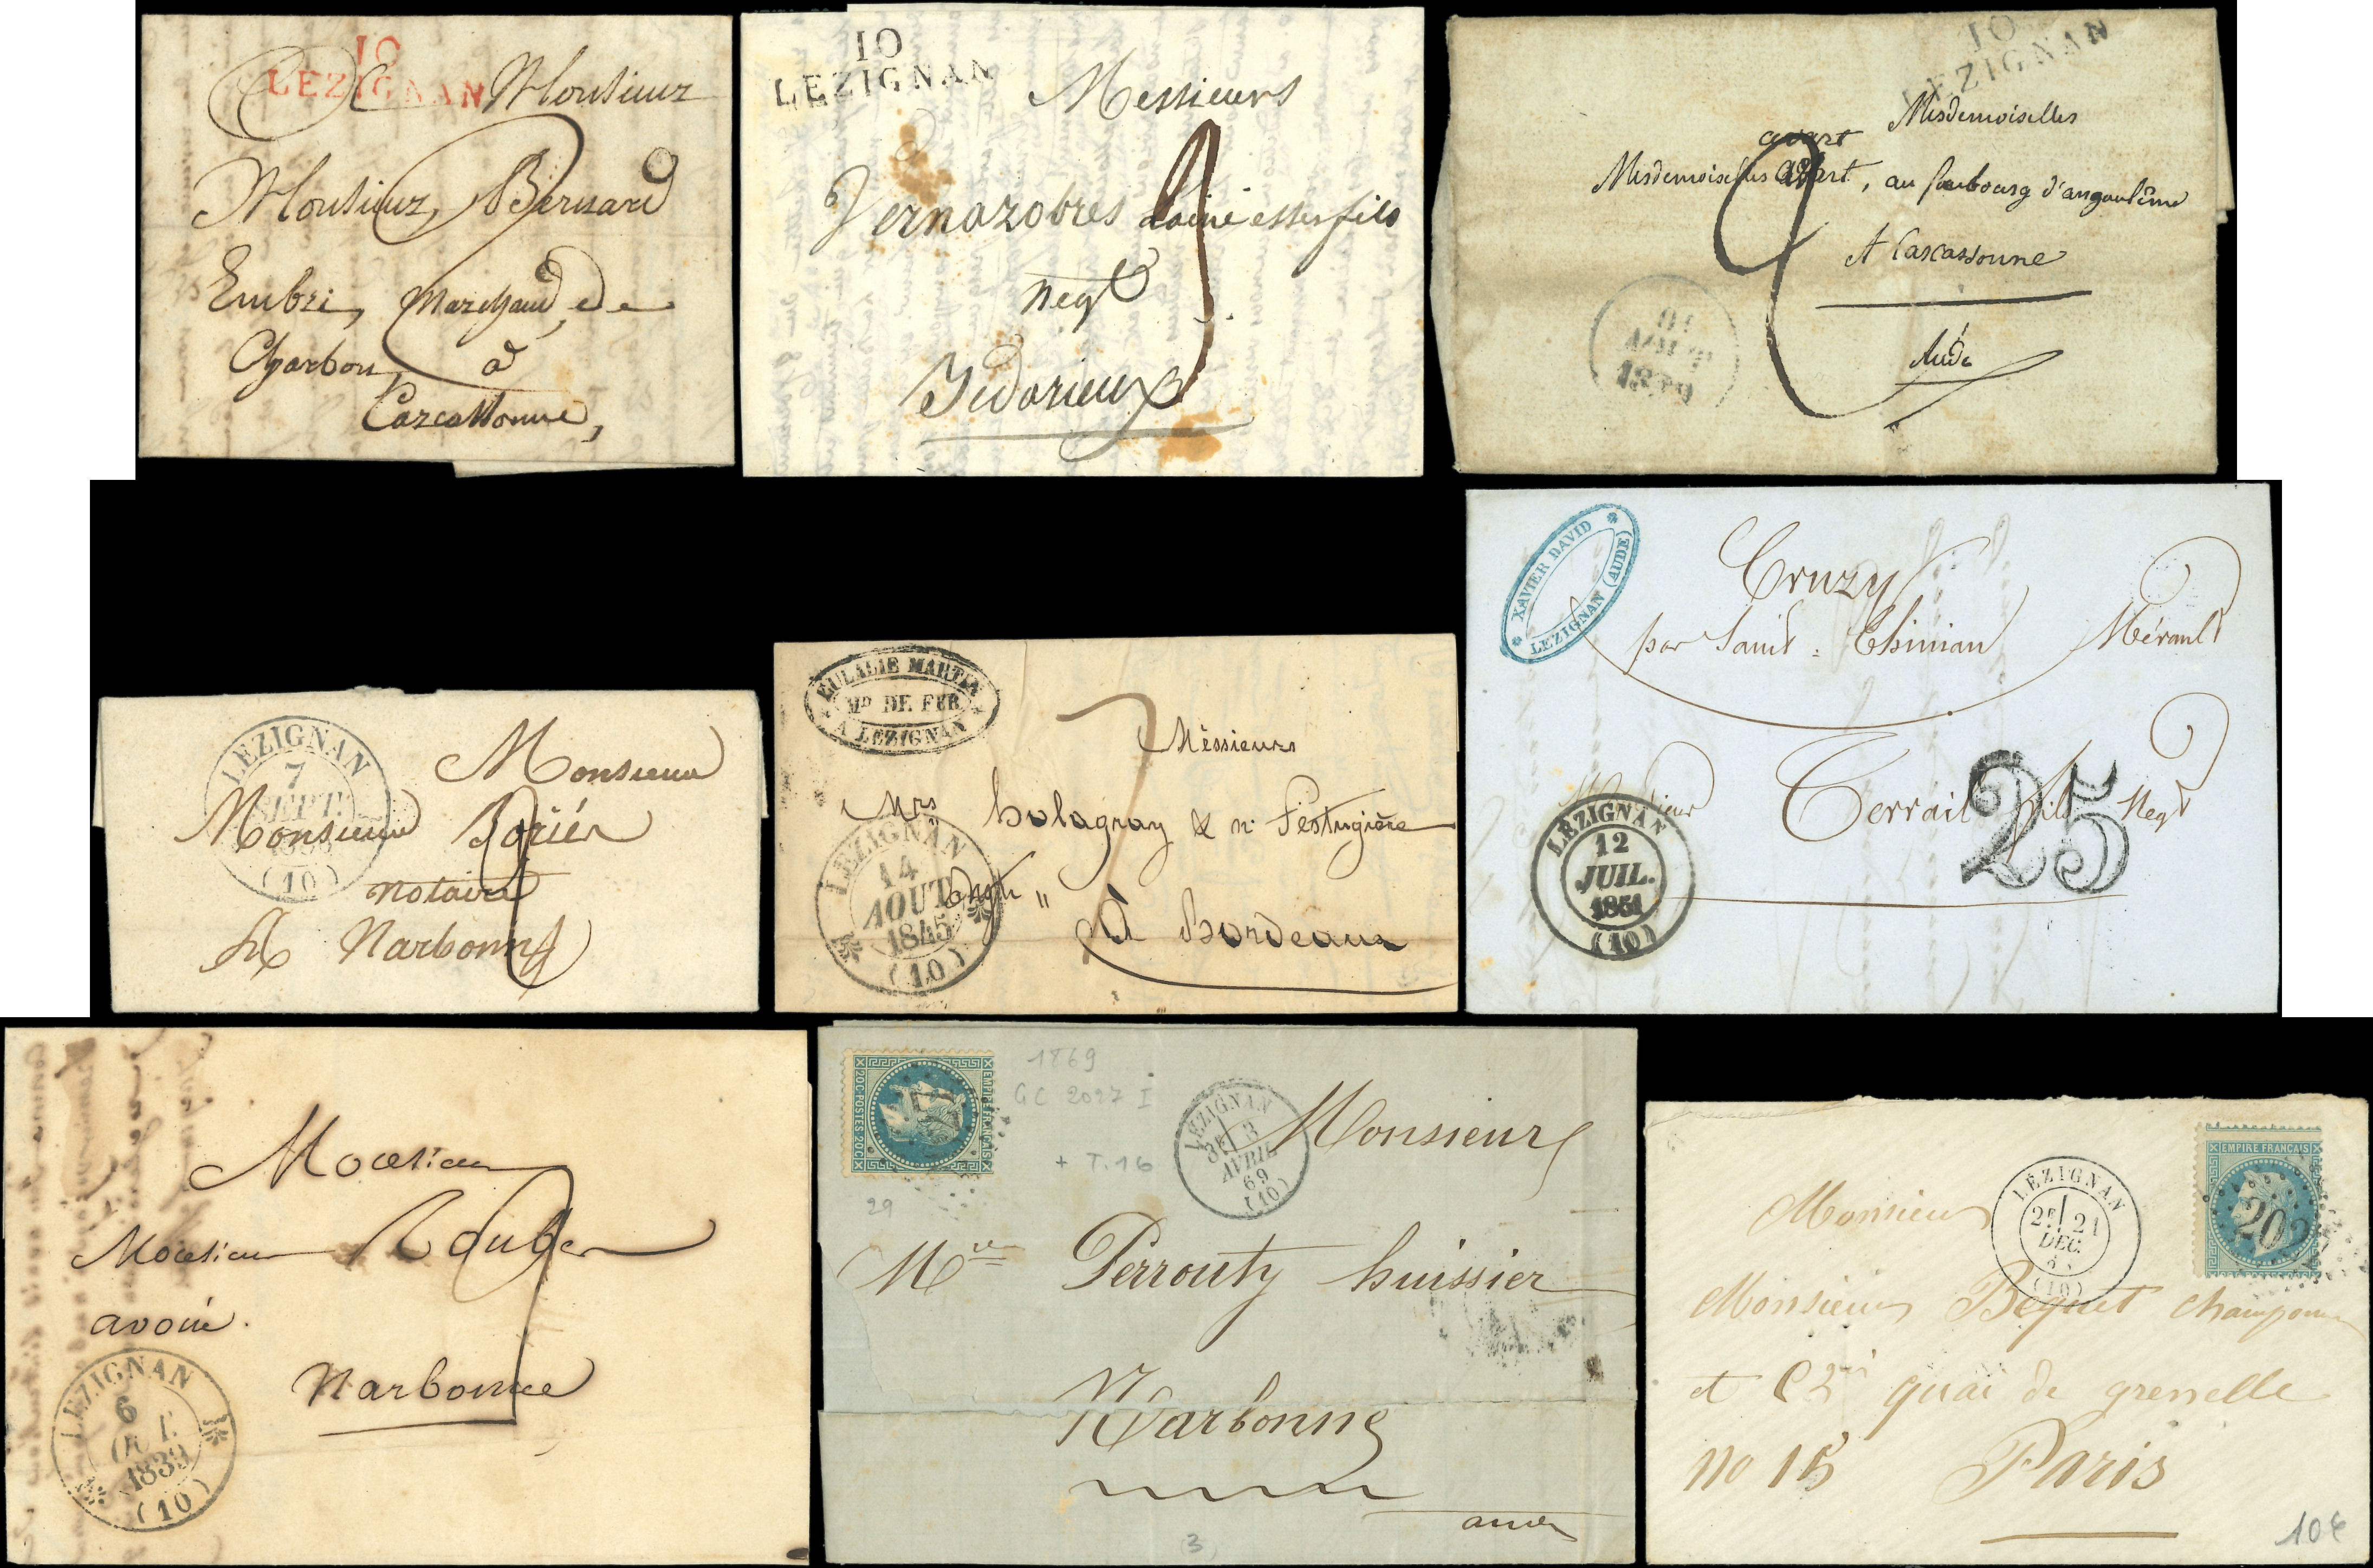 10
LEZIGNAN
A Monsieur
Monsieur Bernard
Embri, Marchand de
Charbon, à
Carcassonne,
10
LEZIGNAN
Messieurs
Vernazobres l'ainé et ses fils
Negt
Bédarieux
10
LEZIGNAN
Mesdemoiselles
avart
Mesdemoiselles, au faubourg d'angoulême
A Carcassonne
Aude
1830
LEZIGNAN
7
SEPT.
(10)
Monsieur
Monsieur Borier
notaire
A Narbonne
EULALIE MARTIN
Md DE FER
A LEZIGNAN
7
Messieurs
Mrs & Festugière
à Bordeaux
LEZIGNAN
14
AOUT
1845
(10)
XAVIER DAVID
LEZIGNAN (AUDE)
Cruzy
par Saint-Chinian Hérault
Monsieur Terrail fils Negt
25
LEZIGNAN
12
JUIL.
1851
(10)
Monsieur
Monsieur
avoué.
Narbonne
LEZIGNAN
6
OCT.
1839
(10)
EMPIRE FRANÇAIS
20C POSTES 20C
1869
GC 2027 I
+ T.16
29
LEZIGNAN
3E 3
AVRIL
69
(10)
Monsieur
Mre Perrouty huissier
Narbonne
aude
(3)
EMPIRE FRANÇAIS
LÉZIGNAN
2E 21
DEC.
(10)
Monsieur
Monsieur Bequet
et quai de grenelle
no 15 Paris
10€